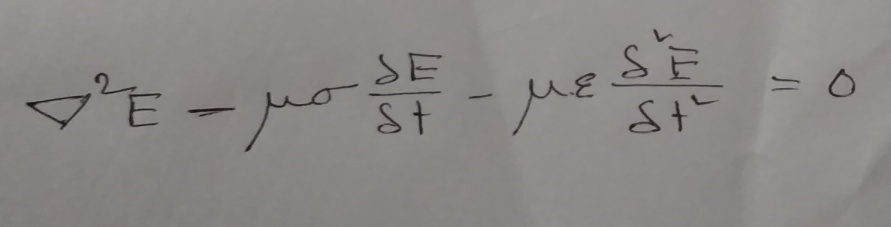 ∇²E − μσ δE/δt − με δ²E/δt² = 0